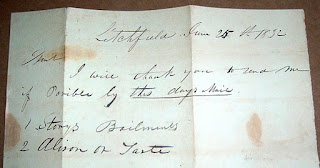 Litchfield June 25th 1832
I will thank you to send me
if Posible by this days Mail
1 Storys Bailments
2 Alison on Taste